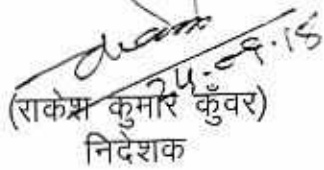 24.09.18
(राकेश कुमार कुँवर)
निदेशक